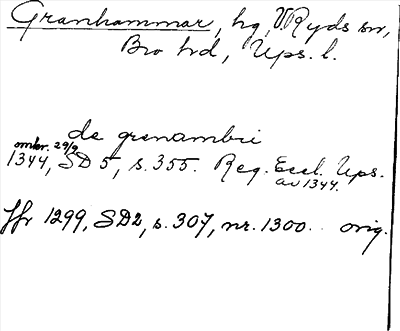 Granhammar, hg, V. Ryds sn,
Bro hd, Upps. l.
de granambri
omkr. 29/9
1344, SD 5, s. 355. Reg. Eccl. Ups.
av 1344.
Jfr 1299, SD2, s. 307, nr. 1300. orig.